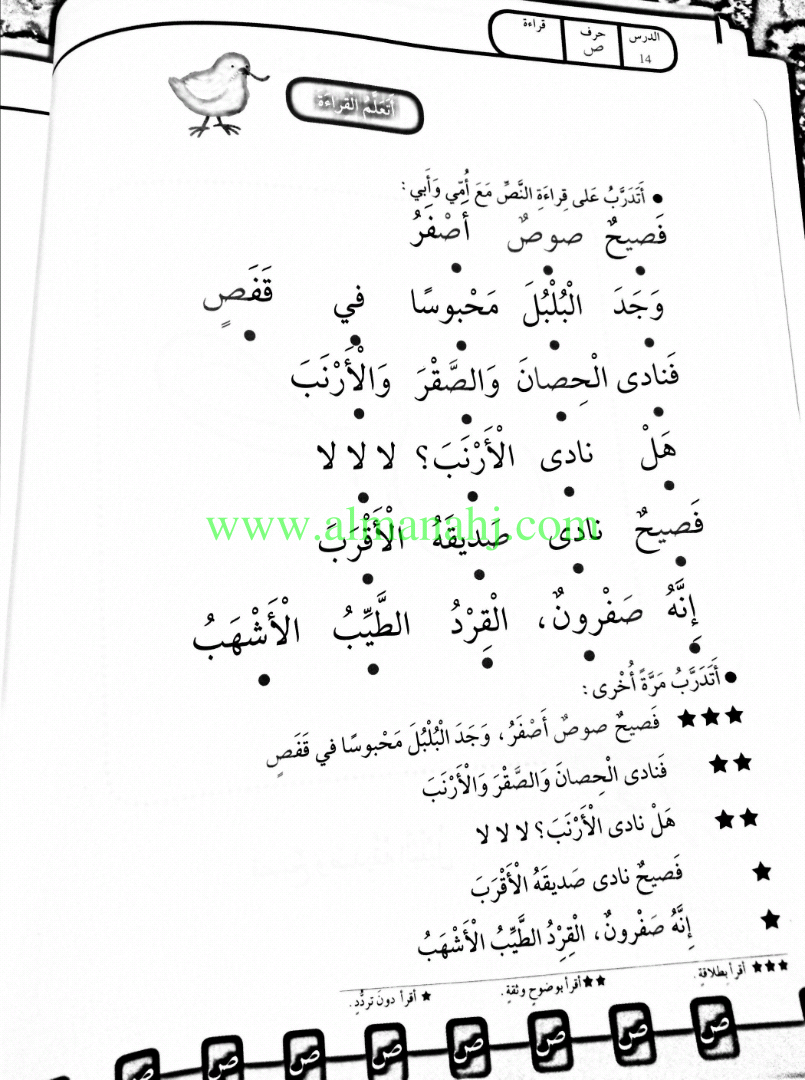 الدرس 14
حرف ص
قراءة
أَتَعَلَّمُ الْقِراءَةَ
● أَتَدَرَّبُ عَلى قِراءَةِ النَّصِّ مَعَ أُمّي وَأَبي :
فَصيحٌ صوصٌ أَصْفَرُ
وَجَدَ الْبُلْبُلَ مَحْبوسًا في قَفَصٍ
فَنادى الْحِصانَ وَالصَّقْرَ وَالْأَرْنَبَ
هَلْ نادى الْأَرْنَبَ؟ لا لا لا
فَصيحٌ نادى صَديقَهُ الْأَقْرَبَ
www.almanahj.com
إِنَّهُ صَفْرونٌ، الْقِرْدُ الطَّيِّبُ الْأَشْهَبُ
● أَتَدَرَّبُ مَرَّةً أُخْرى :
★★★ فَصيحٌ صوصٌ أَصْفَرُ، وَجَدَ الْبُلْبُلَ مَحْبوسًا في قَفَصٍ
★★ فَنادى الْحِصانَ وَالصَّقْرَ وَالْأَرْنَبَ
★★ هَلْ نادى الْأَرْنَبَ؟ لا لا لا
★ فَصيحٌ نادى صَديقَهُ الْأَقْرَبَ
★ إِنَّهُ صَفْرونٌ، الْقِرْدُ الطَّيِّبُ الْأَشْهَبُ
★★★ أقرأ بِطلاقةٍ. ★★ أقرأ بوضوحٍ وثقةٍ. ★ أقرأ دونَ تردُّدٍ.
ص ص ص ص ص ص ص ص